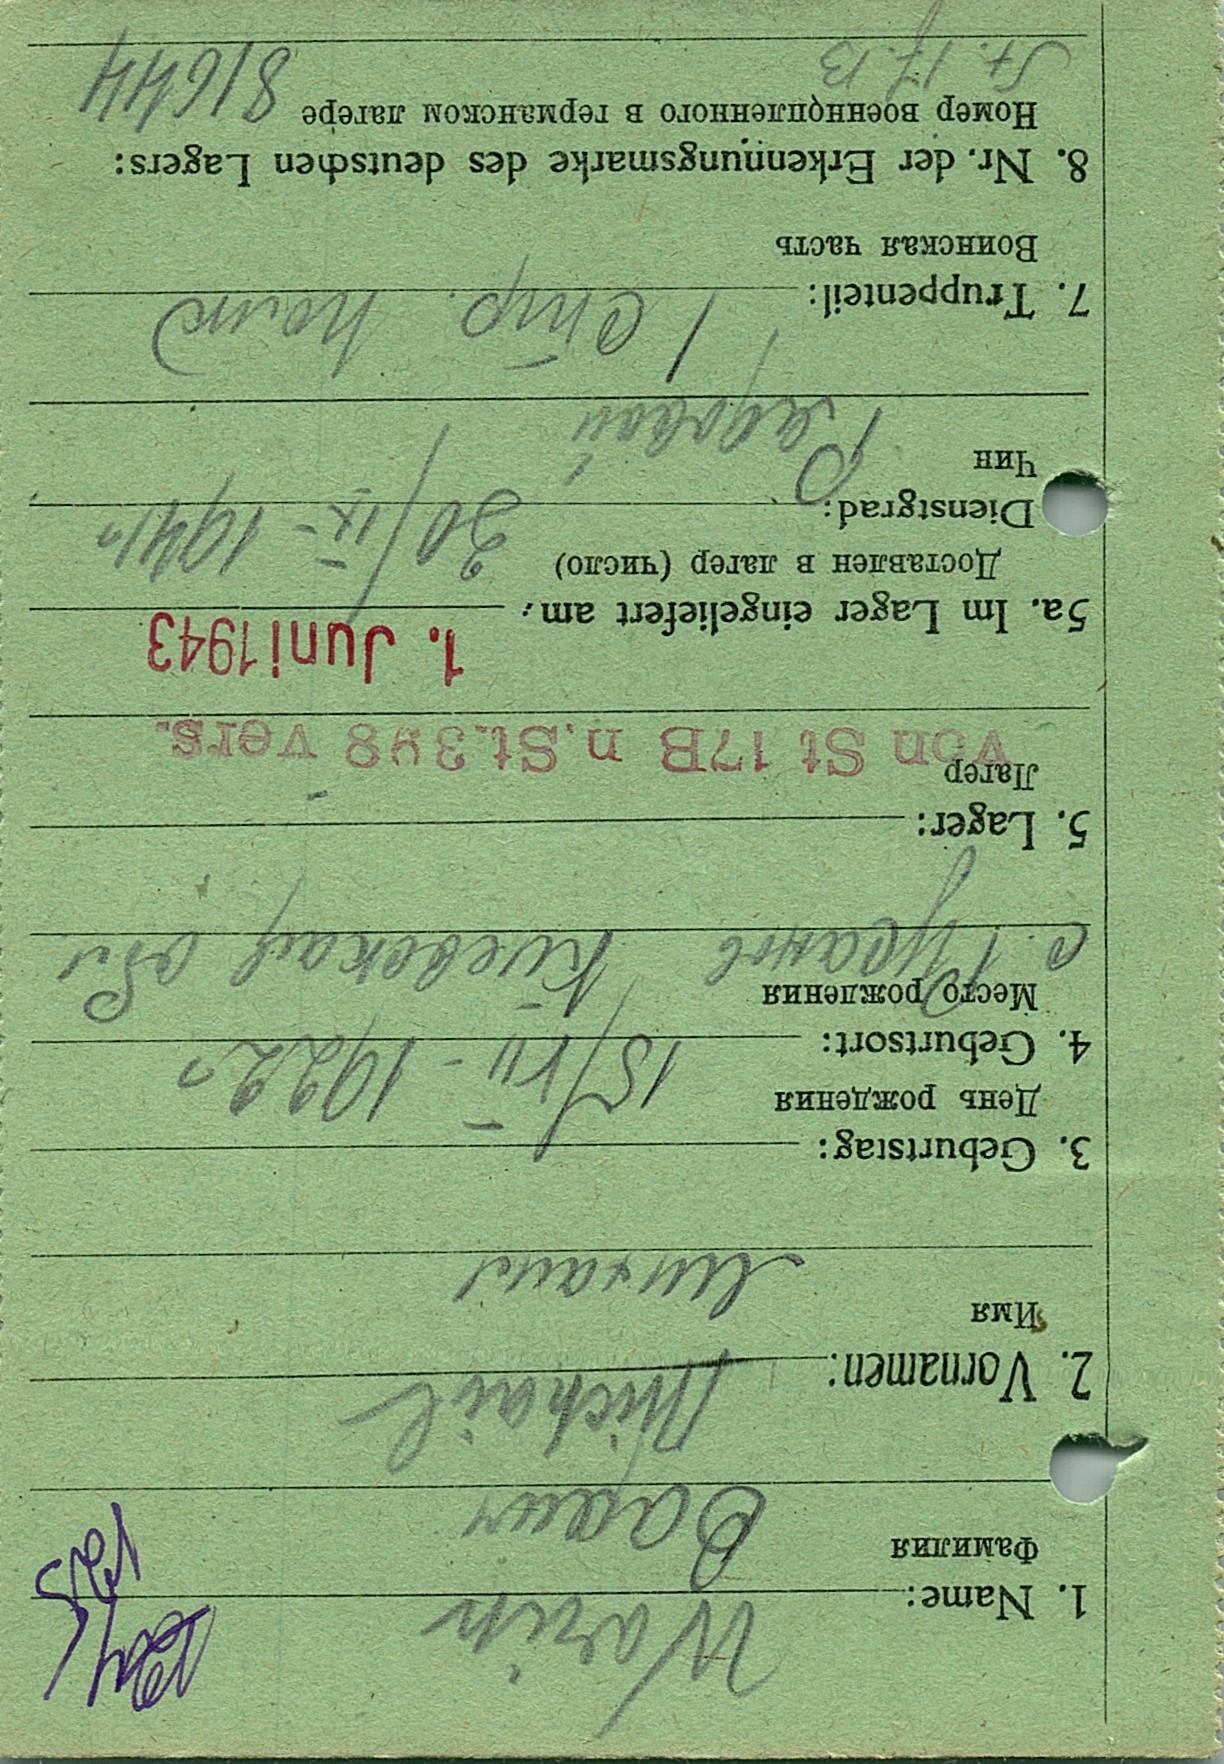 1. Name: Warin
Фамилия Варин
2. Vornamen: Michail
Имя Михаил
3. Geburtstag:
День рождения 15/VII - 1922 г
4. Geburtsort:
Место рождения
с. Киевская обл
5. Lager:
Лагер
von St 17B n. St. 398 vers.
1. Juni 1943
5a. Im Lager eingeliefert am:
Доставлен в лагер (число) 30/IX - 1941 г
Dienstgrad:
Чин Рядовой
7. Truppenteil: 1 Стр. полк
Воинская часть
8. Nr. der Erkennungsmarke des deutschen Lagers:
Номер военнопленного в германском лагере 81644
St. 17. B